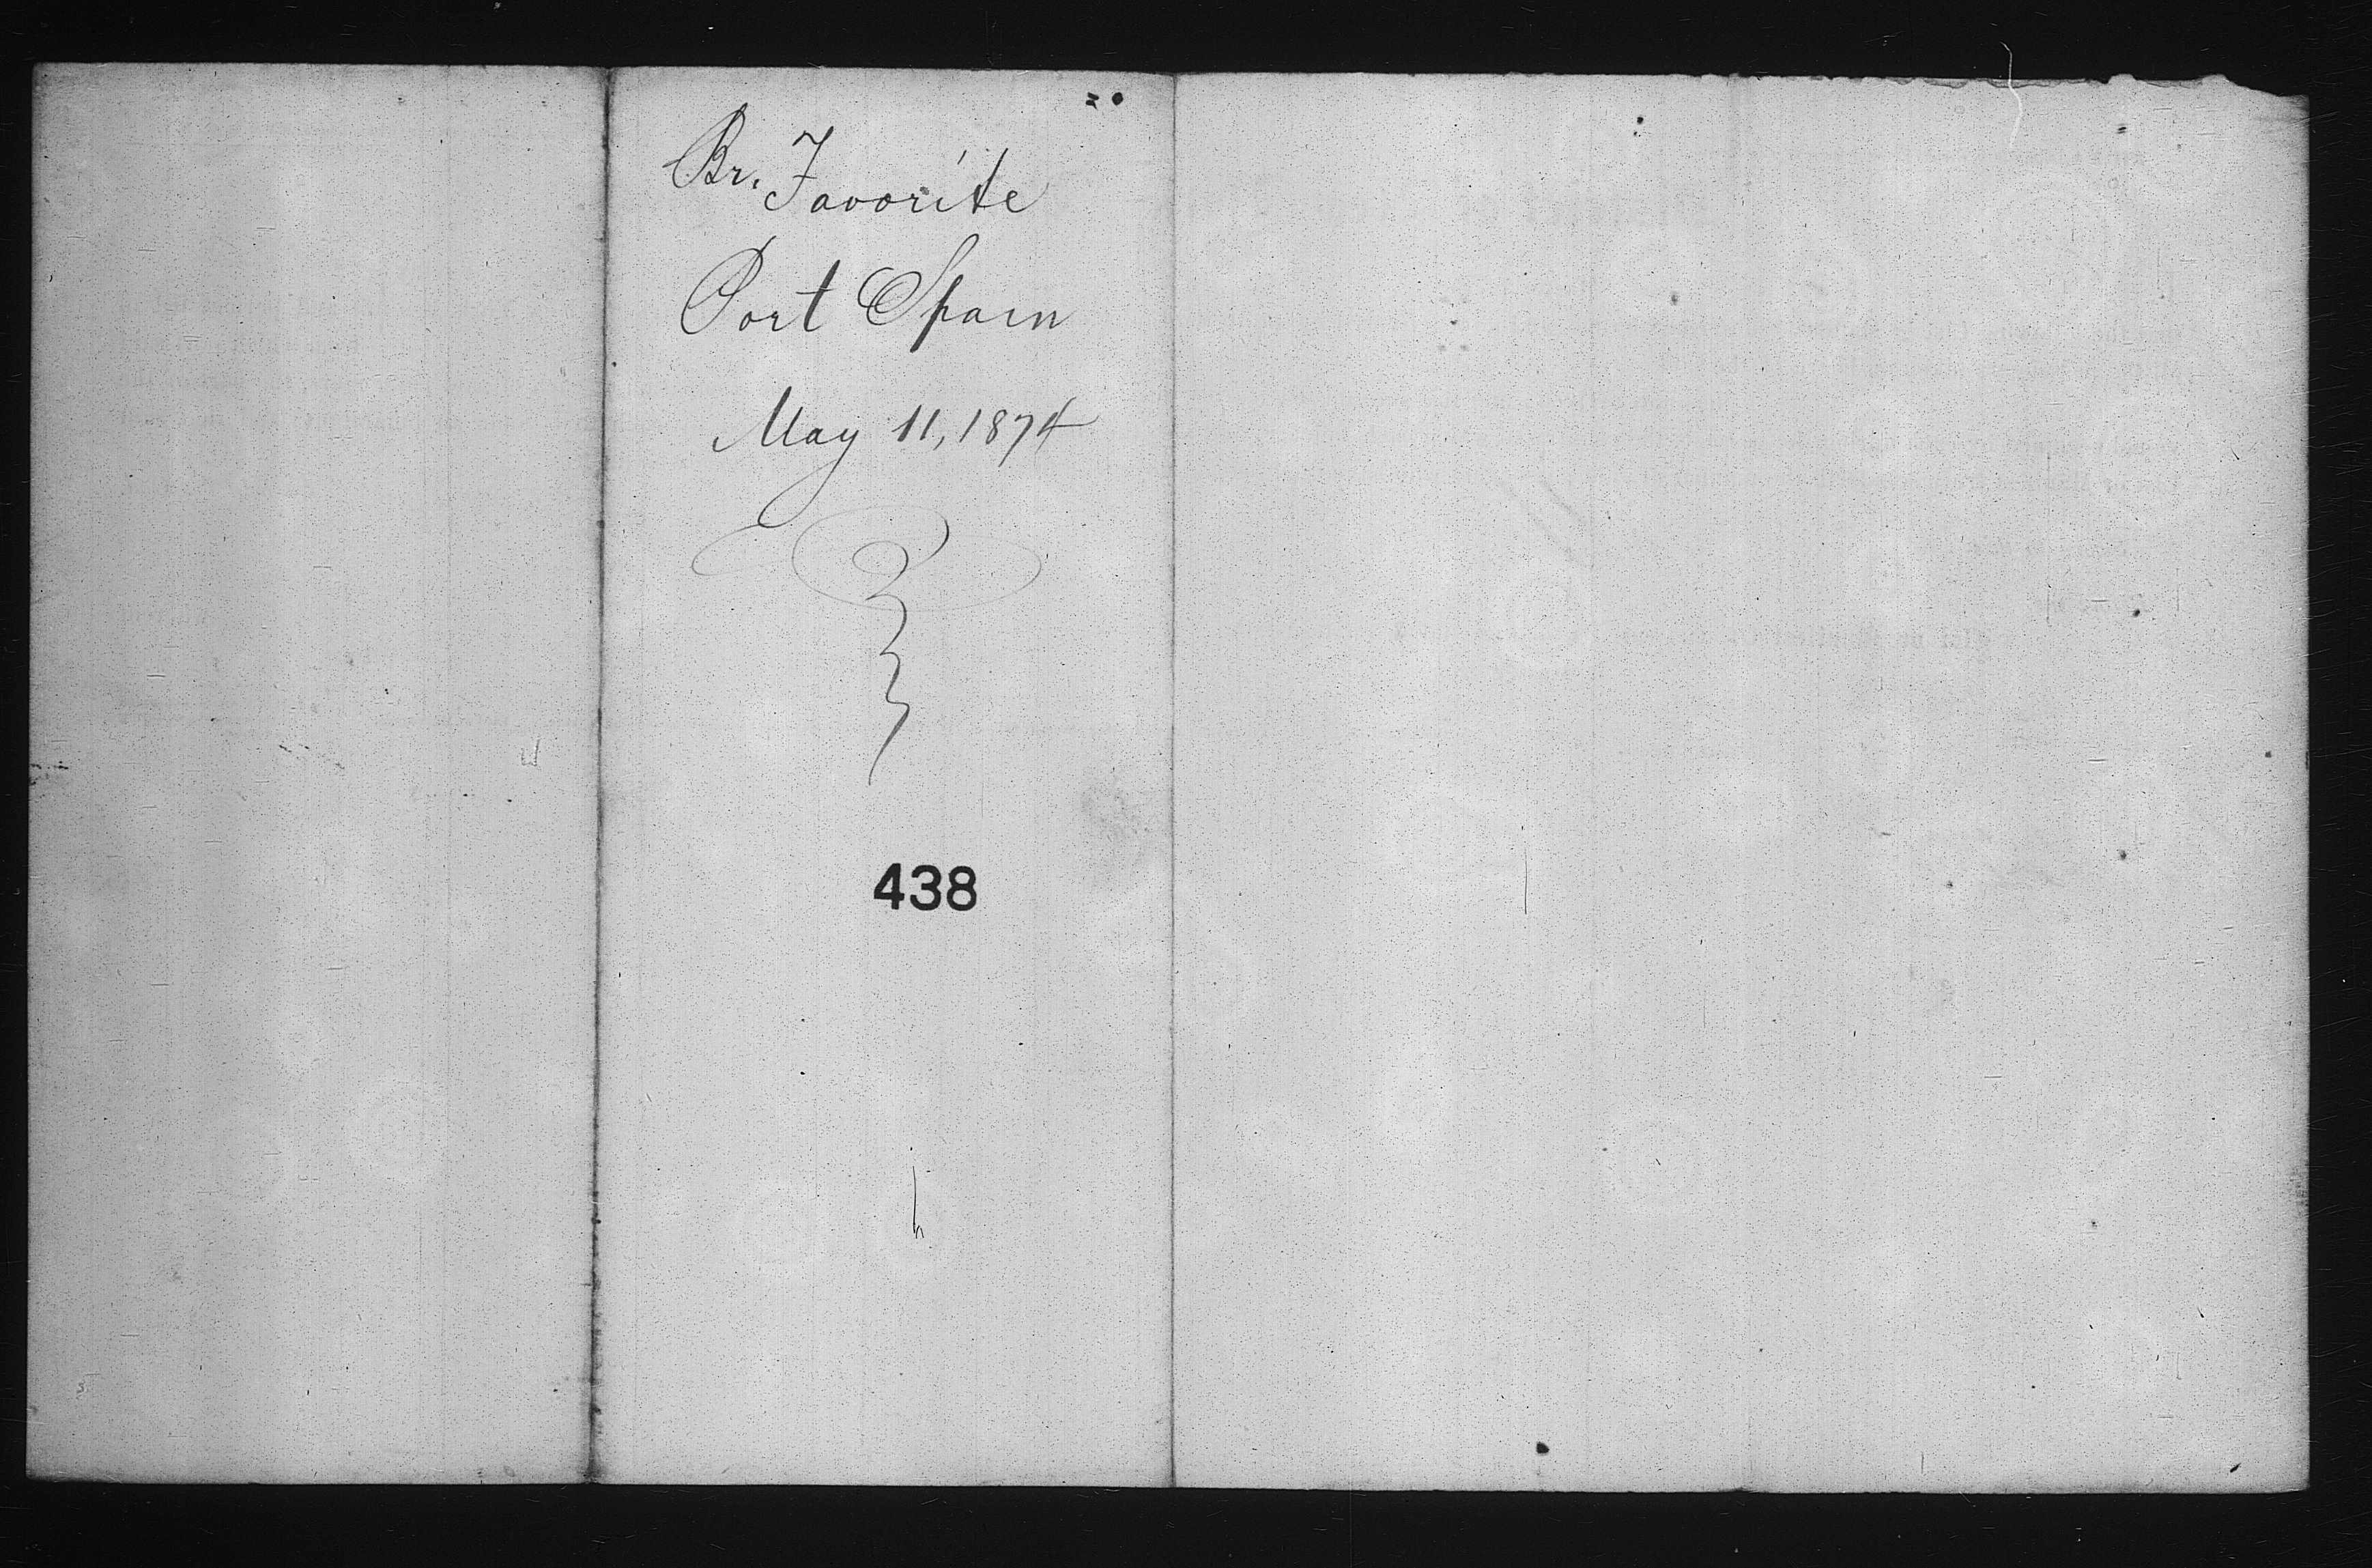 Br. Favorite
Port Spain
May 11, 1874
438